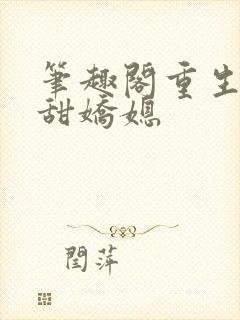 筆趣閣重生
甜嬌媳
閆萍